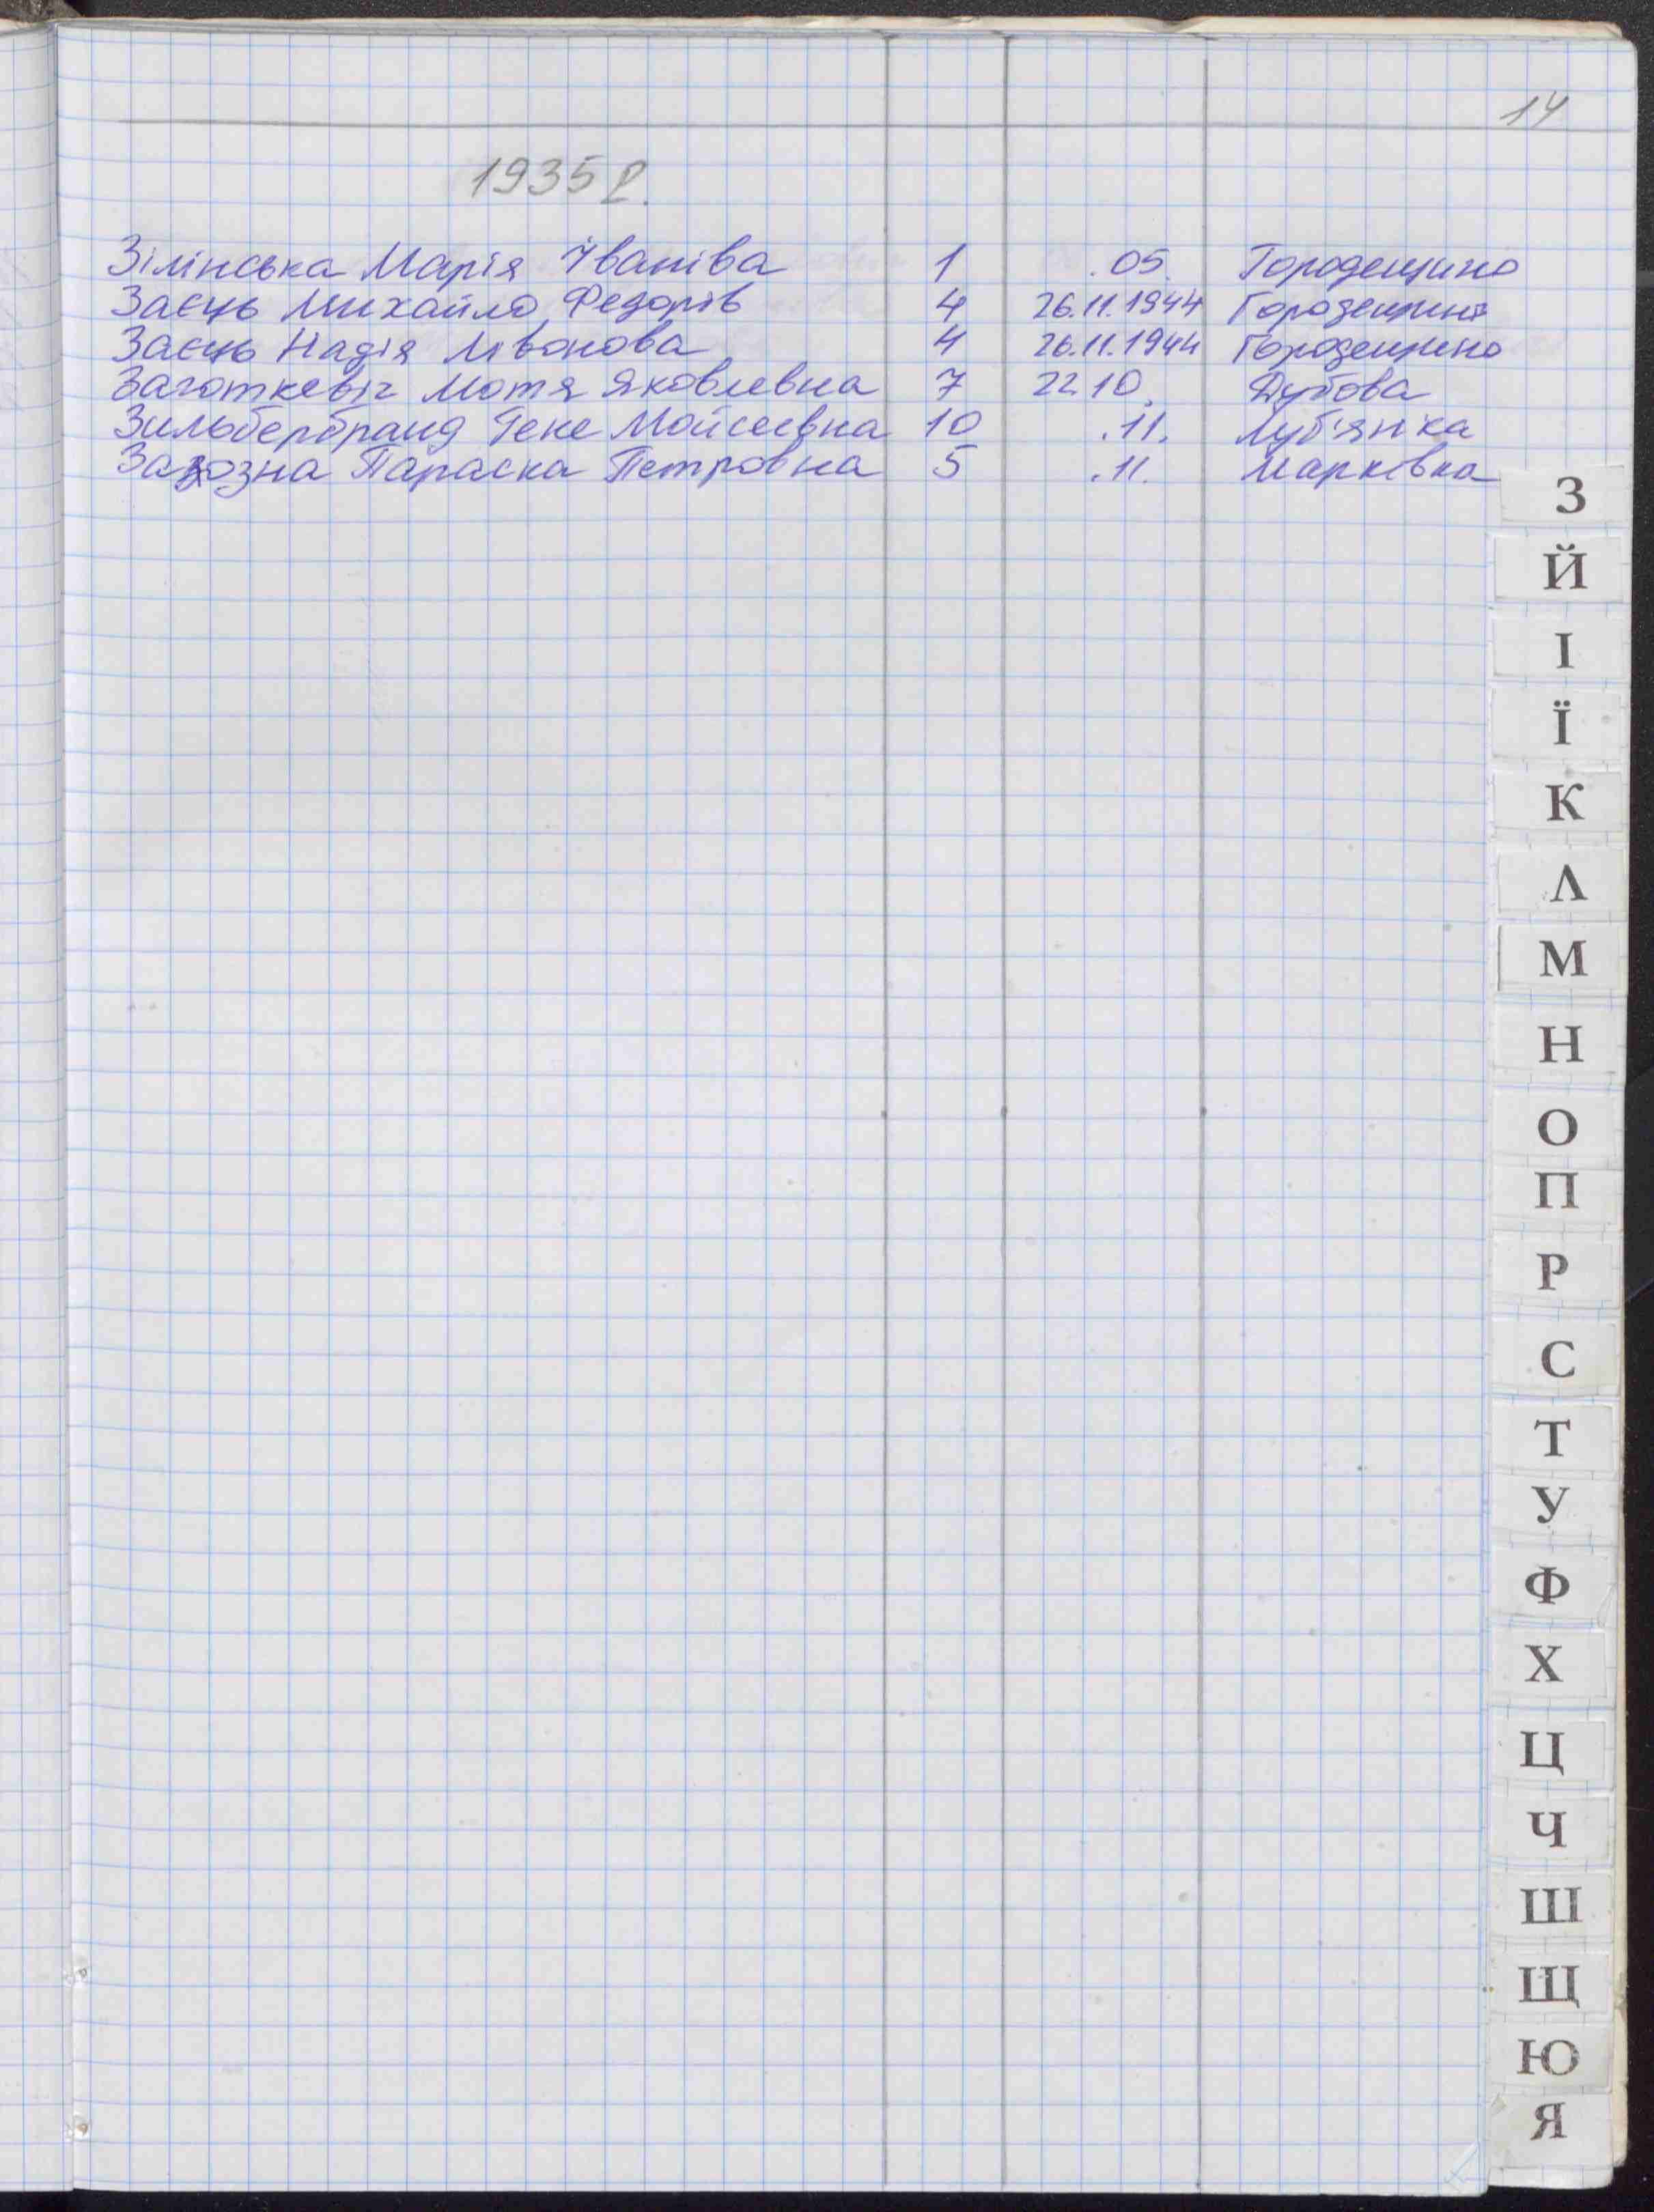 14
1935 р.
Зілінська Марія Іваніва 1 .05. Городещино
Заєць Михайло Федорів 4 26.11.1944 Городещино
Заєць Надія Лівонова 4 26.11.1944 Городещино
Заготкевіч Мотя Яковлевна 7 22.10. Дубова
Зильбербранд Геке Мойсеевна 10 .11. Луб'янка
Загозна Параска Петровна 5 .11. Марківка
З
Й
І
Ї
К
Л
М
Н
О
П
Р
С
Т
У
Ф
Х
Ц
Ч
Ш
Щ
Ю
Я